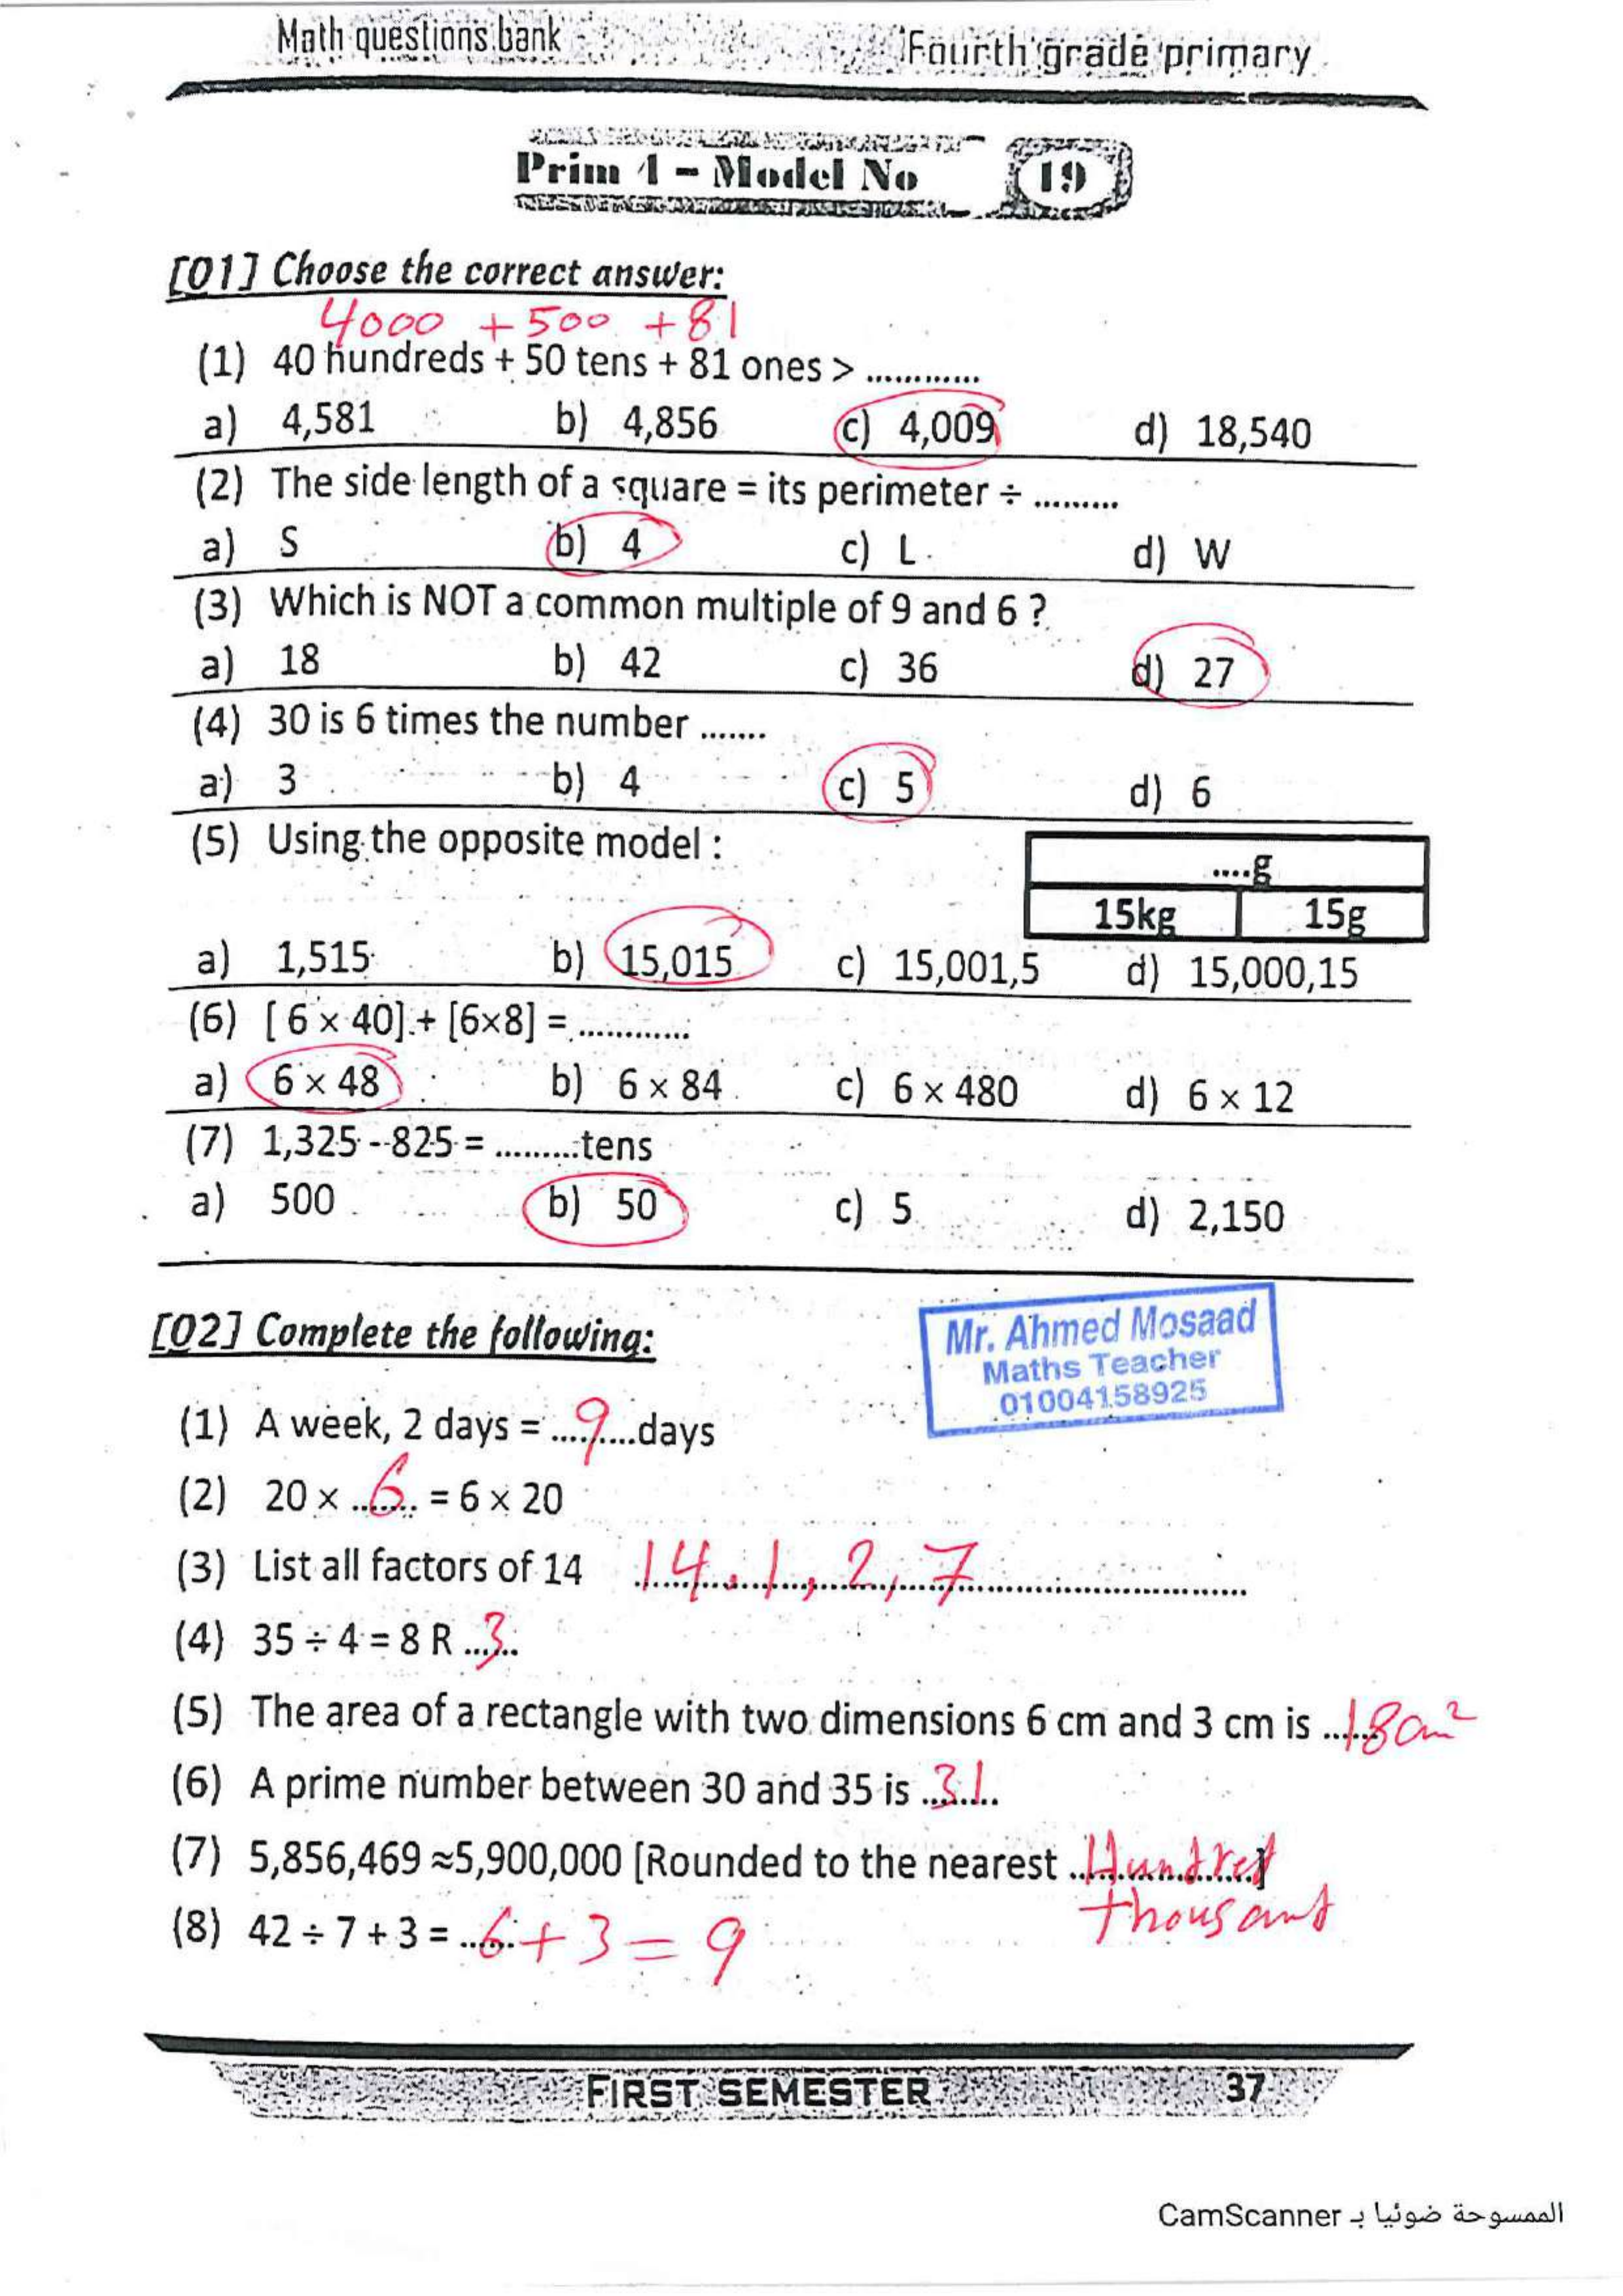 Math questions bank
Fourth grade primary
Prim 4 - Model No 19
[Q1] Choose the correct answer:
4000 + 500 + 81
(1) 40 hundreds + 50 tens + 81 ones > ............
a) 4,581 b) 4,856 c) 4,009 d) 18,540
(2) The side length of a square = its perimeter ÷ .........
a) S b) 4 c) L d) W
(3) Which is NOT a common multiple of 9 and 6 ?
a) 18 b) 42 c) 36 d) 27
(4) 30 is 6 times the number .......
a) 3 b) 4 c) 5 d) 6
(5) Using the opposite model :
....g
15kg 15g
a) 1,515 b) 15,015 c) 15,001,5 d) 15,000,15
(6) [ 6 × 40] + [6×8] = ............
a) 6 × 48 b) 6 × 84 c) 6 × 480 d) 6 × 12
(7) 1,325 - 825 = .........tens
a) 500 b) 50 c) 5 d) 2,150
[Q2] Complete the following:
Mr. Ahmed Mosaad
Maths Teacher
01004158925
(1) A week, 2 days = ...9...days
(2) 20 × ...6... = 6 × 20
(3) List all factors of 14 14, 1, 2, 7
(4) 35 ÷ 4 = 8 R ...3...
(5) The area of a rectangle with two dimensions 6 cm and 3 cm is ...18 cm²
(6) A prime number between 30 and 35 is ...31...
(7) 5,856,469 ≈5,900,000 [Rounded to the nearest ...Hundred...]
thousand
(8) 42 ÷ 7 + 3 = ...6 + 3 = 9
FIRST SEMESTER 37
الممسوحة ضوئيا بـ CamScanner